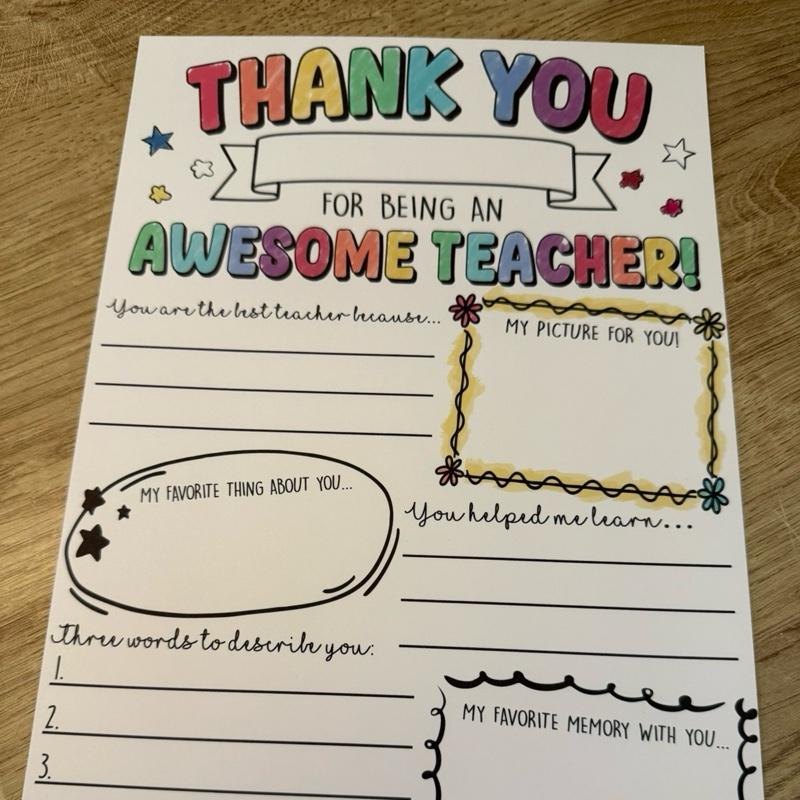 THANK YOU
FOR BEING AN
AWESOME TEACHER!
You are the best teacher because...
MY PICTURE FOR YOU!
MY FAVORITE THING ABOUT YOU...
You helped me learn...
Three words to describe you:
1.
2.
3.
MY FAVORITE MEMORY WITH YOU...